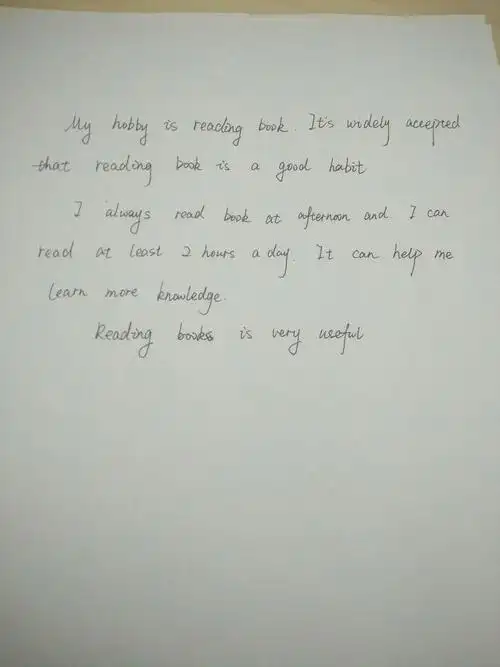 My hobby is reading book. It's widely accepted
that reading book is a good habit
I always read book at afternoon and I can
read at least 2 hours a day. It can help me
learn more knowledge.
Reading books is very useful